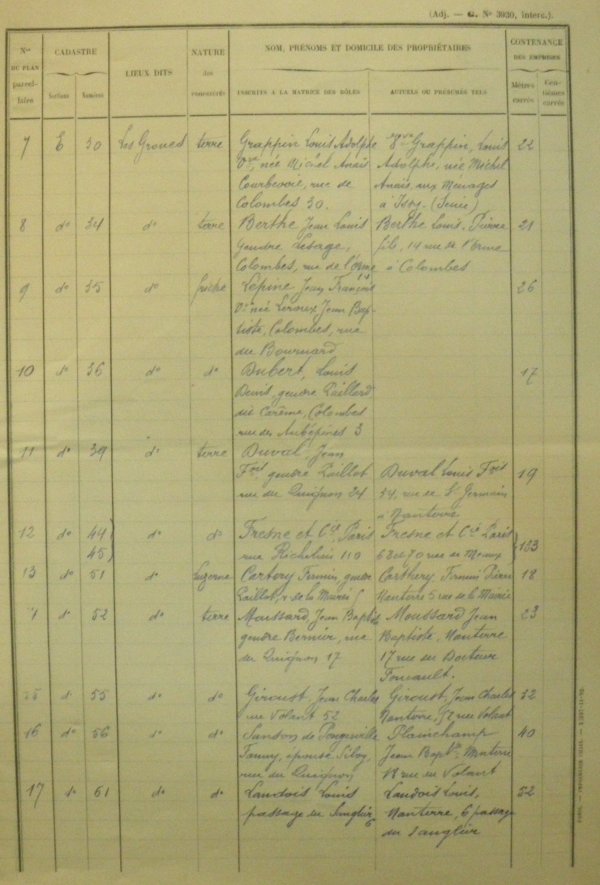 (Adj. — G. N° 3930, interc.).
Nos DU PLAN parcellaire
CADASTRE
Sections
Numéros
LIEUX DITS
NATURE des PROPRIÉTÉS
NOM, PRÉNOMS ET DOMICILE DES PROPRIÉTAIRES
INSCRITS A LA MATRICE DES RÔLES
ACTUELS OU PRÉSUMÉS TELS
CONTENANCE DES EMPRISES
Mètres carrés
Centièmes carrés
7 E 30 Les Groues terre Grappin Louis Adolphe Grappin, Louis 22
Vve née Michel Anaïs Adolphe, née Michel
Courbevoie, rue de Anaïs, rue
Colombes 30. à Issy (Seine)
8 do 34 do terre Berthe Jean Louis Berthe Louis Pierre 21
gendre Leberge, fils, 14 rue de l'Orme
Colombes, rue de l'Orme à Colombes
9 do 35 do friche Lépine Jean François 26
Vve née Leroux Jean Bap-
tiste, Colombes, rue
du Bournard
10 do 36 do do Louis 17
Denis, gendre Paillard
dit Carême, Colombes
rue des Aubépines 3
11 do 39 do terre Duval Jean
Fois, gendre Paillot Duval Louis Fois 19
rue du Quignon 24 54, rue de St Germain
à Nanterre
12 do 44 do do Fresne et Cie, Paris Fresne et Cie Paris
45 rue Richelieu 110 68 et 70 rue de Meaux 133
13 do 51 do luzerne Firmin, gendre Firmin Pierre 18
Paillot, r. de la Mairie 5 Nanterre 5 rue de la Mairie
do 52 do terre Moussard Jean Baptiste Moussard Jean 23
gendre Bernier, rue Baptiste, Nanterre
du Quignon 17 17 rue du Docteur
Foucault.
15 do 55 do do Giroust, Jean Charles Giroust, Jean Charles 32
rue Volant 52 Nanterre, 52 rue Volant
16 do 56 do do Sanson de Pongerville Plainchamp 40
Fanny, épouse Silvy, Jean Baptte Nanterre
rue du Quignon 18 rue du Volant
17 do 61 do do Landois Louis Landois Louis, 52
passage du Sanglier 6 Nanterre, 6 passage
du Sanglier